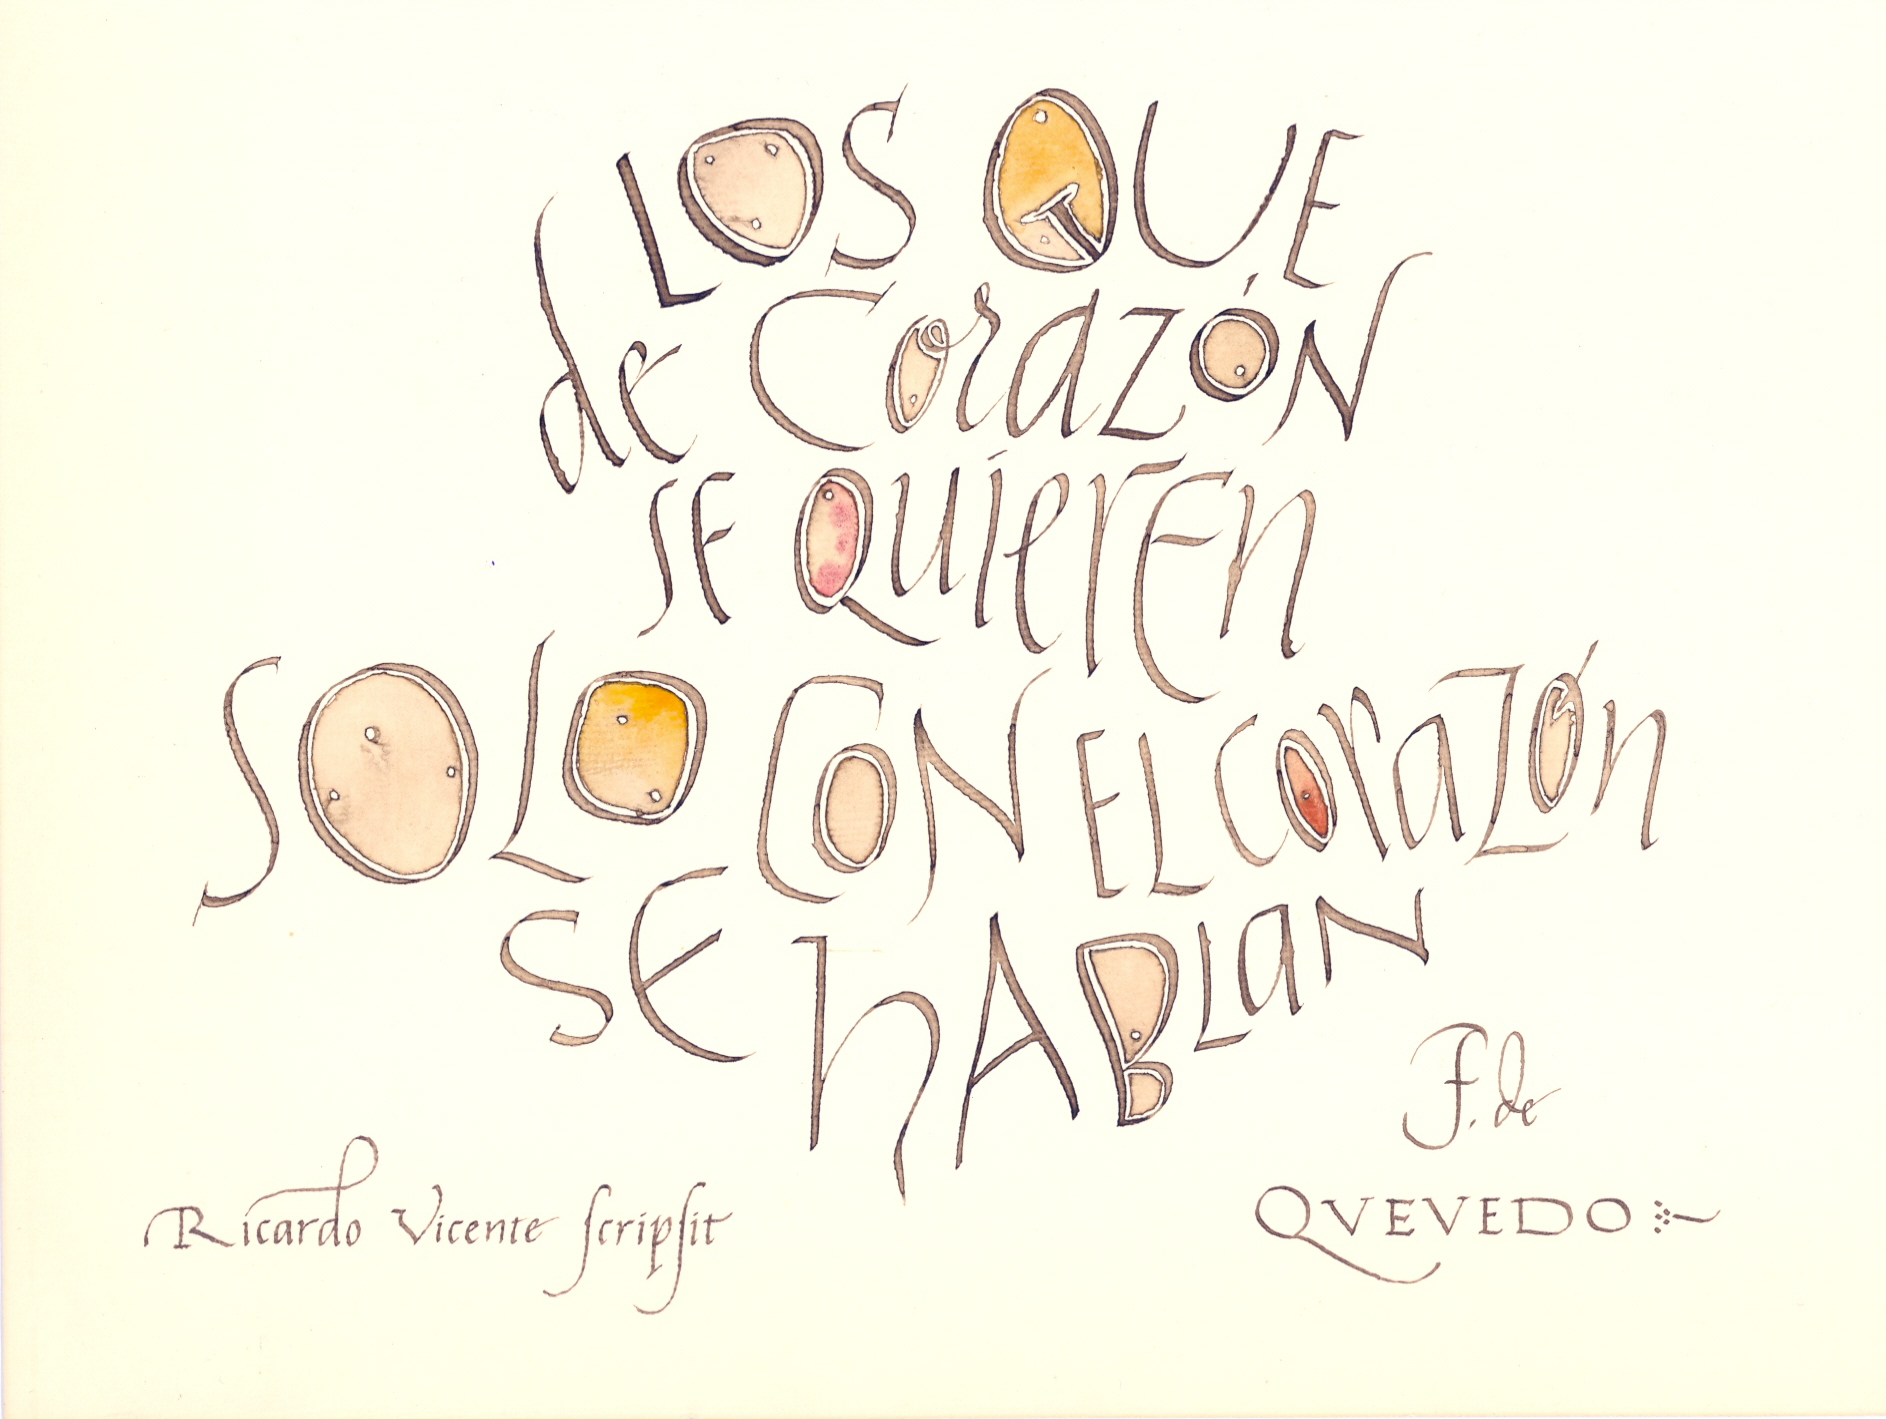 LOS QUE
de Corazón
SE Quieren
SOLO CON EL corazón
SE hABLAN
F. de
QVEVEDO
Ricardo Vicente ſcripſit